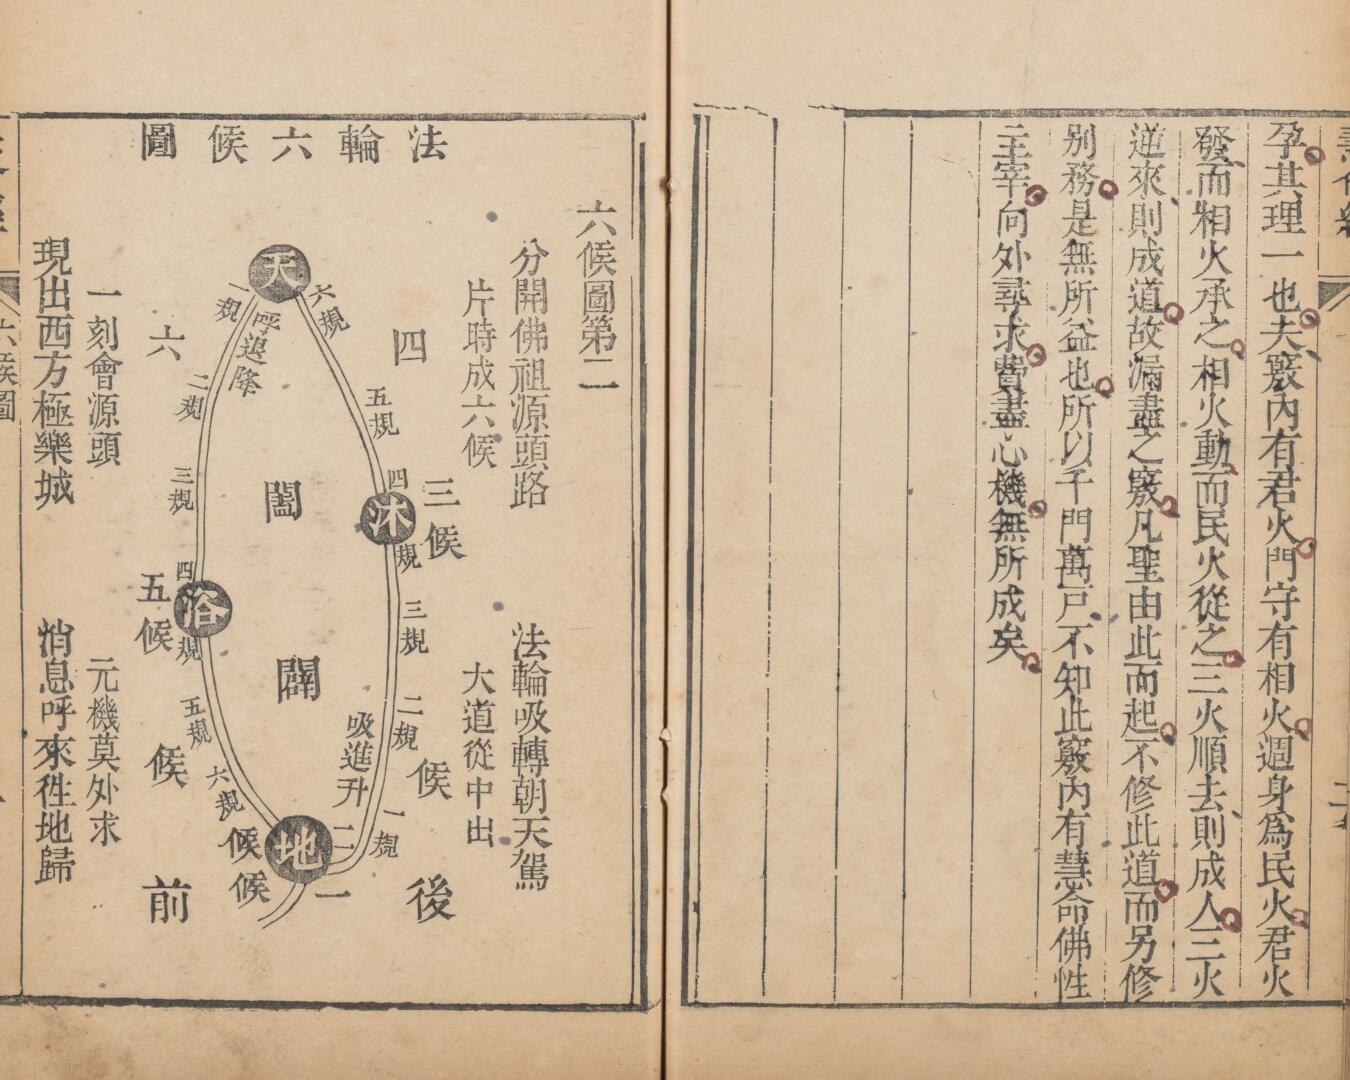 孕其理一也夫竅內有君火門守有相火週身為民火君火
發而相火承之相火動而民火從之三火順去則成人三火
逆來則成道故漏盡之竅凡聖由此而起不修此道而另修
別務是無所益也所以千門萬戶不知此竅內有慧命佛性
主宰向外尋求費盡心機無所成矣
法輪六候圖
六候圖第二
分開佛祖源頭路
法輪吸轉朝天駕
片時成六候
大道從中出
一刻會源頭
元機莫外求
現出西方極樂城
消息呼來徃地歸
天
六規
五規
四
沐
規
三規
二規
一規
地
一規
二規
三規
四
浴
規
五規
六規
呼退降
吸進升
闔
闢
四
候
三候
二
候
一
候
五候
六
候
後
前
六候圖